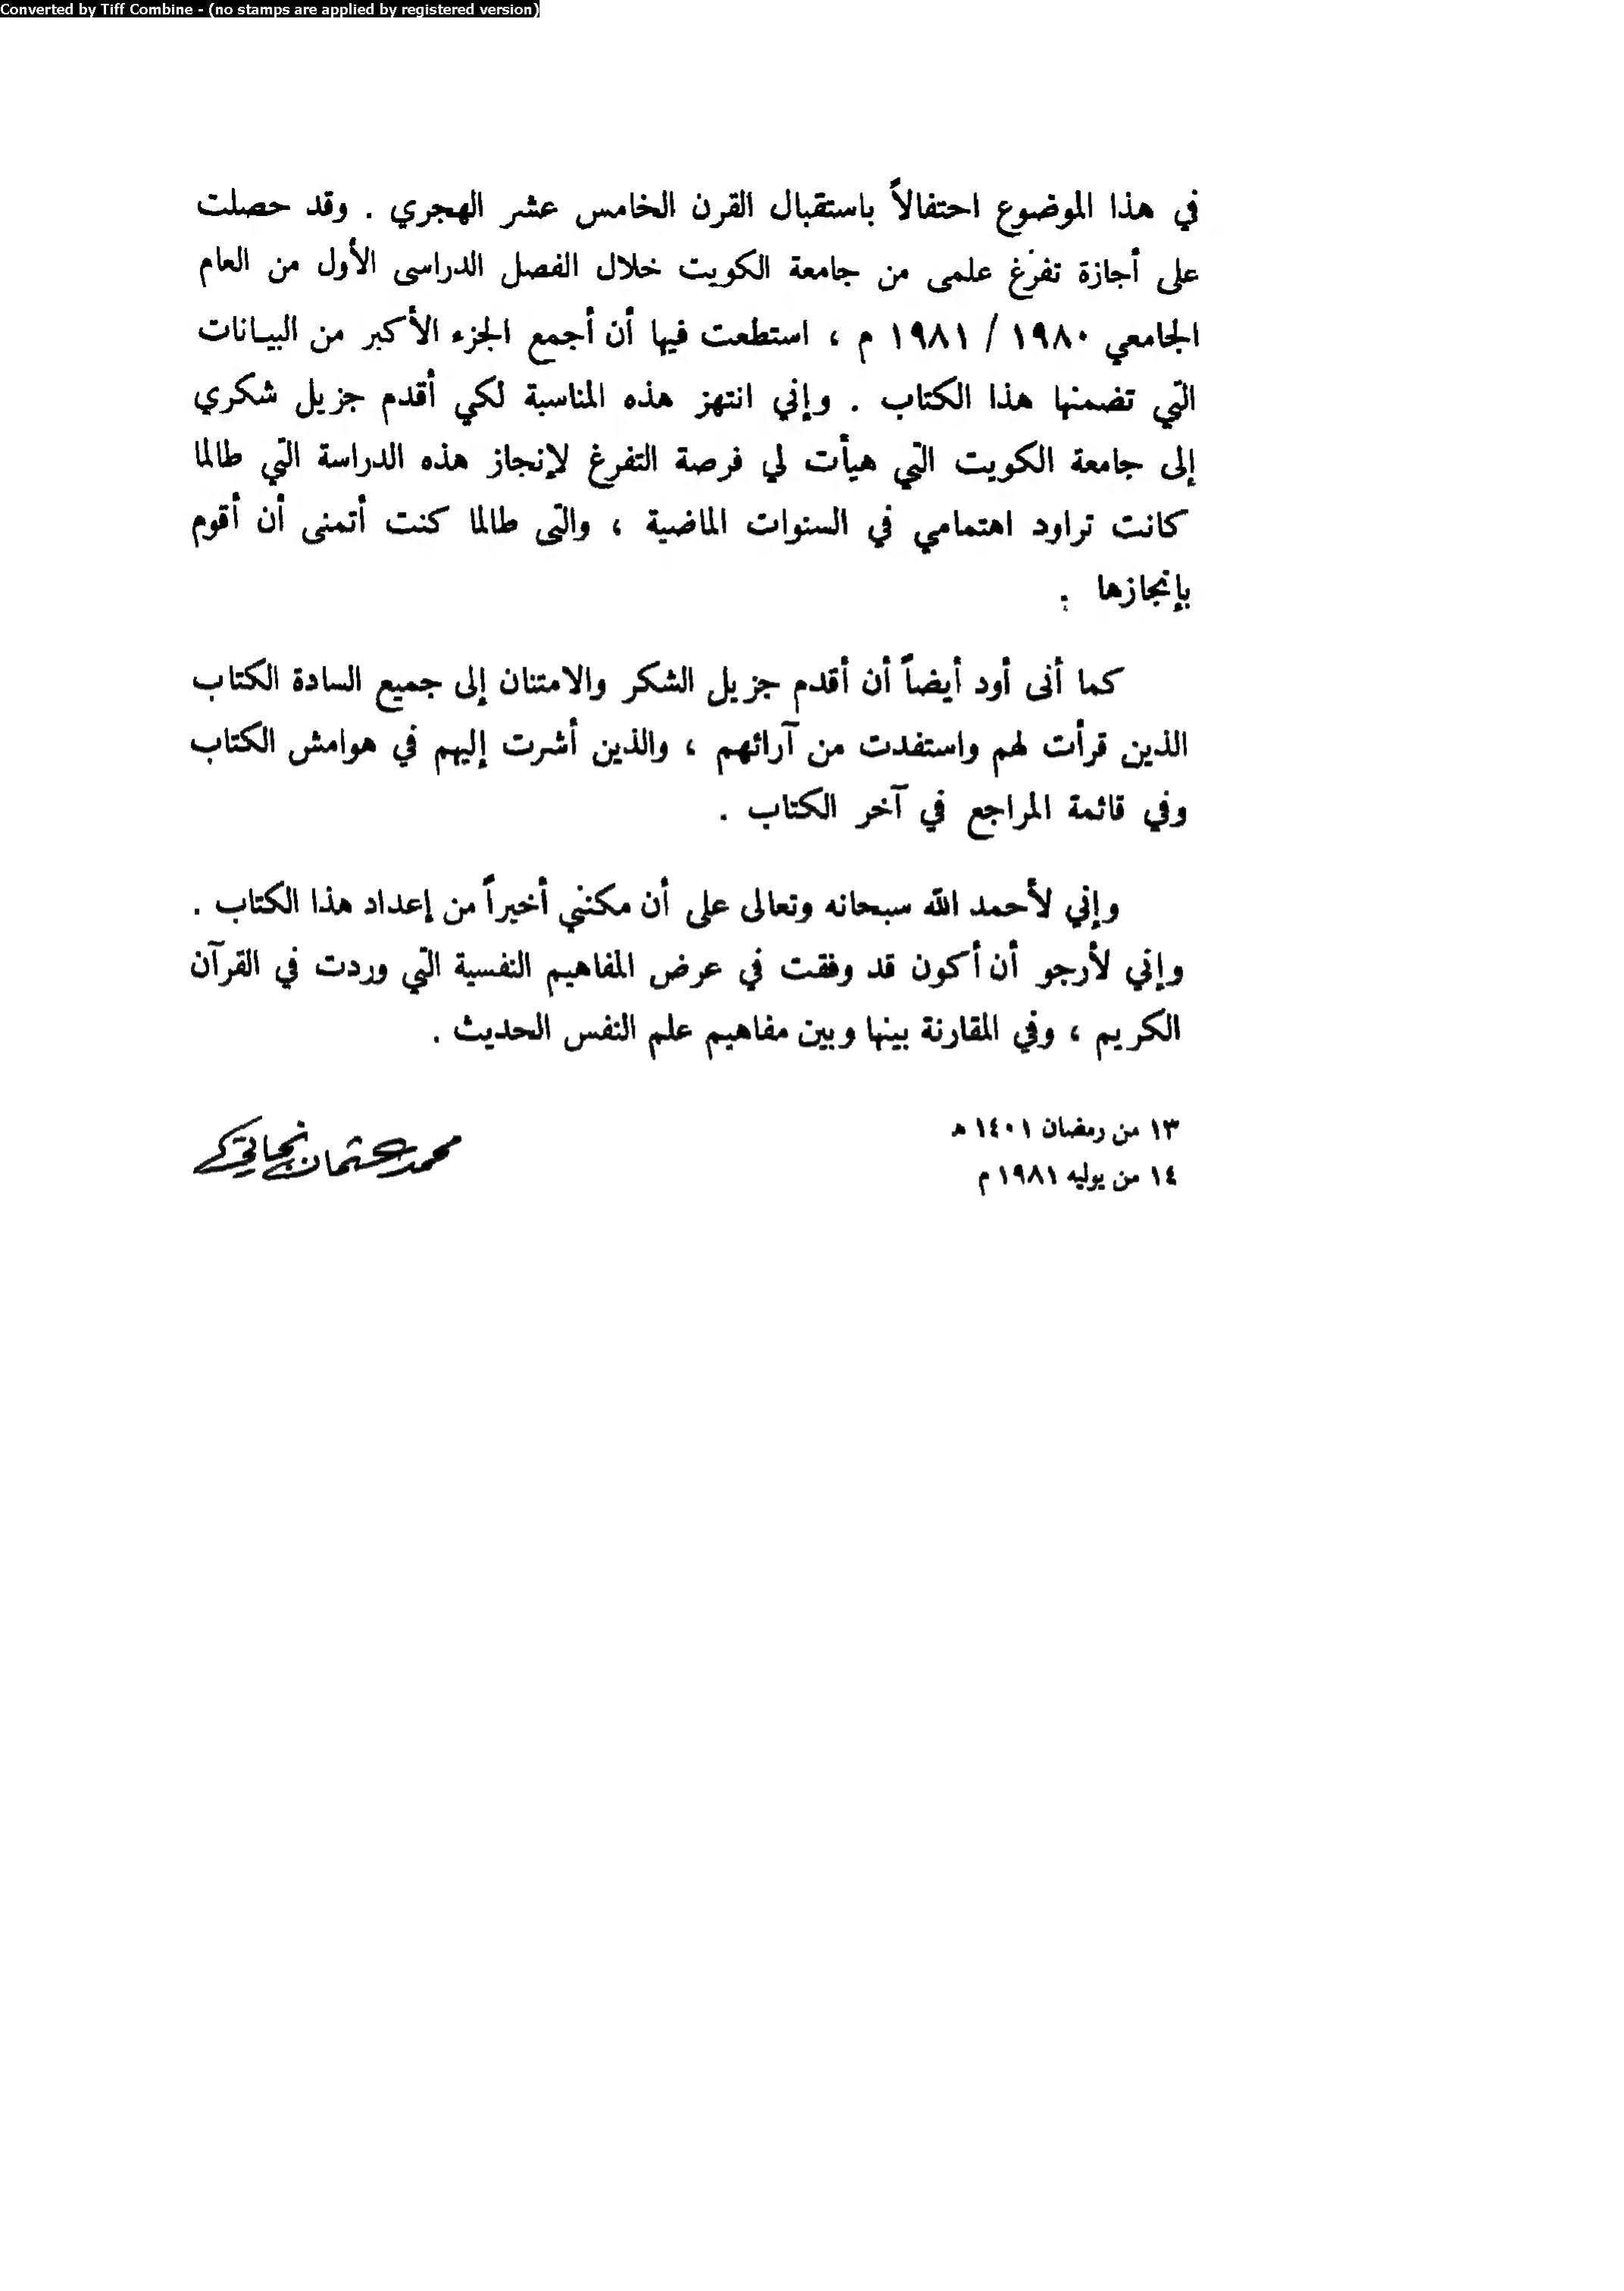 Converted by Tiff Combine - (no stamps are applied by registered version)
في هذا الموضوع احتفالاً باستقبال القرن الخامس عشر الهجري . وقد حصلت
على أجازة تفرّغ علمى من جامعة الكويت خلال الفصل الدراسى الأول من العام
الجامعي ١٩٨٠ / ١٩٨١ م ، استطعت فيها أن أجمع الجزء الأكبر من البيانات
التي تضمنها هذا الكتاب . وإني انتهز هذه المناسبة لكي أقدم جزيل شكري
إلى جامعة الكويت التي هيأت لي فرصة التفرغ لإنجاز هذه الدراسة التي طالما
كانت تراود اهتمامي في السنوات الماضية ، والتى طالما كنت أتمنى أن أقوم
بإنجازها .
كما أنى أود أيضاً أن أقدم جزيل الشكر والامتنان إلى جميع السادة الكتاب
الذين قرأت لهم واستفدت من آرائهم ، والذين أشرت إليهم في هوامش الكتاب
وفي قائمة المراجع في آخر الكتاب .
وإني لأحمد الله سبحانه وتعالى على أن مكنني أخيراً من إعداد هذا الكتاب .
وإني لأرجو أن أكون قد وفقت في عرض المفاهيم النفسية التي وردت في القرآن
الكريم ، وفي المقارنة بينها وبين مفاهيم علم النفس الحديث .
١٣ من رمضان ١٤٠١ هـ
١٤ من يوليه ١٩٨١ م
محمد عثمان نجاتي